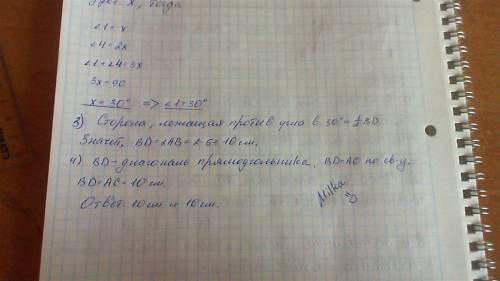 будет x, тогда
∠1 = x
∠4 = 2x
∠1+∠4=3x
3x=90
x=30° => ∠1=30°
3) Сторона, лежащая против угла в 30°=½BD
Значит, BD=2AB=2·5=10см.
4) BD-диагональ прямоугольника. BD=AC по св-у.
BD=AC=10см.
Ответ: 10см и 10см.
Milka